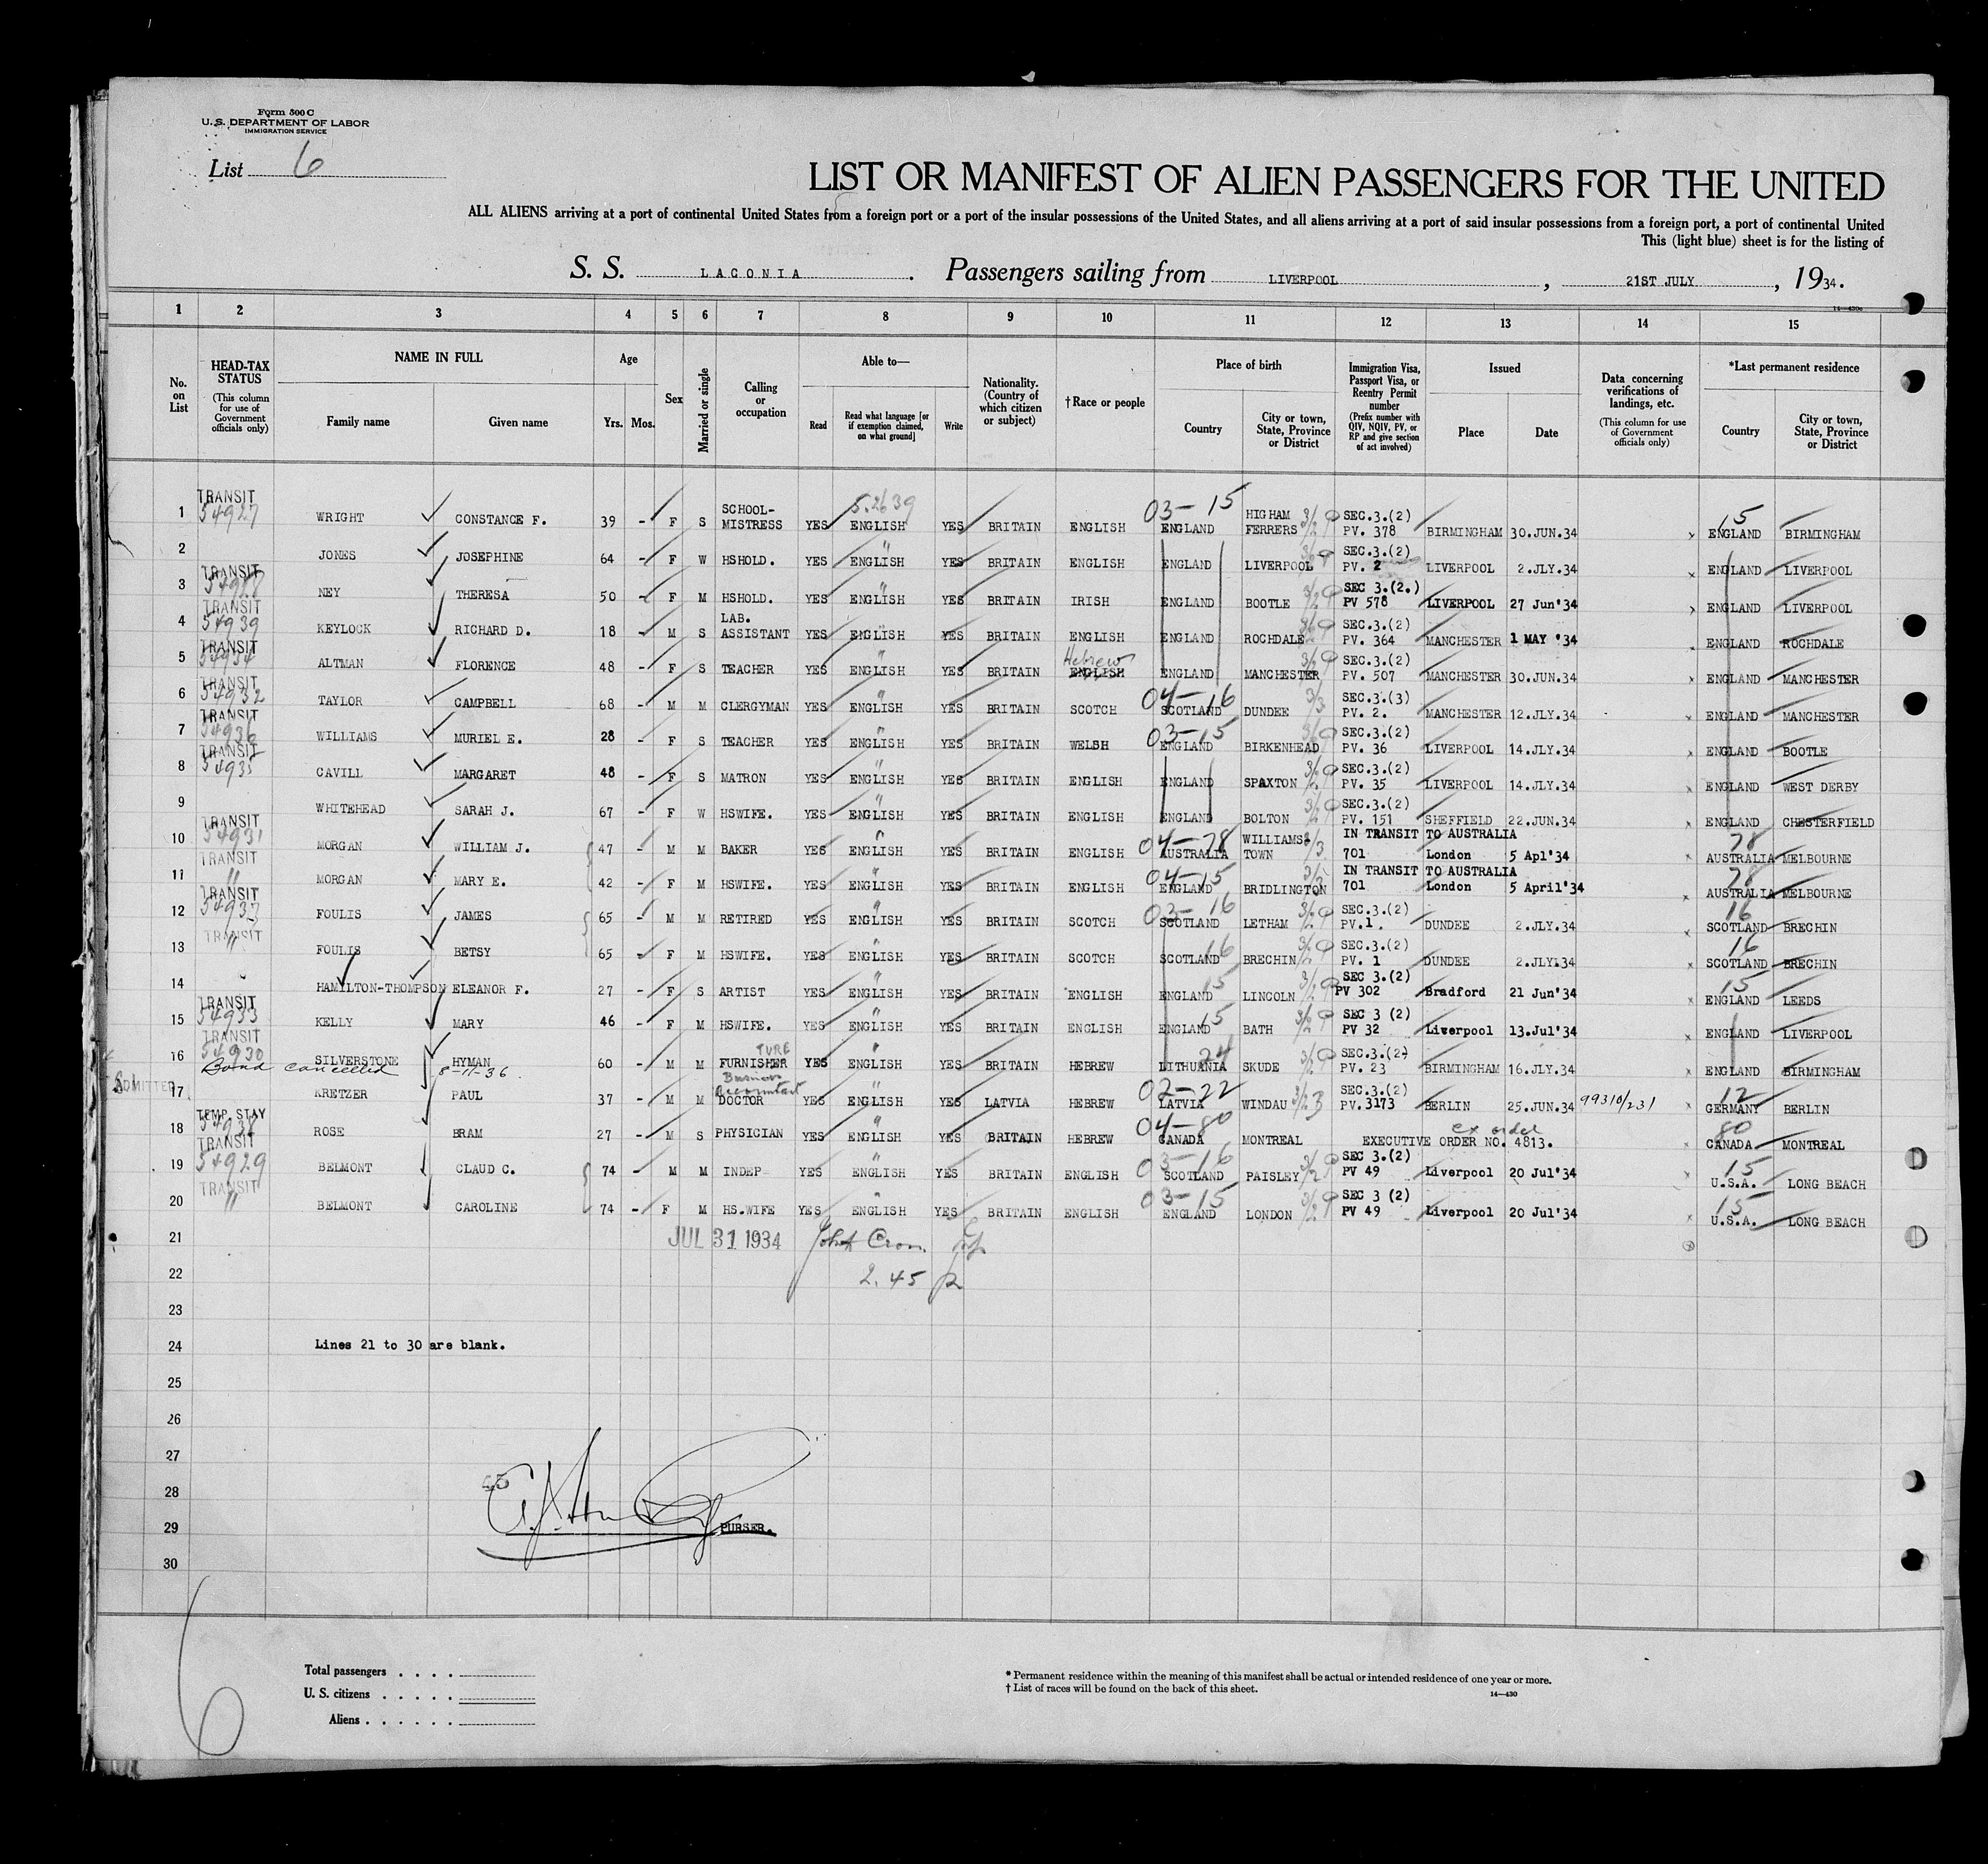 Form 500 C
U. S. DEPARTMENT OF LABOR
IMMIGRATION SERVICE
List 6
LIST OR MANIFEST OF ALIEN PASSENGERS FOR THE UNITED
ALL ALIENS arriving at a port of continental United States from a foreign port or a port of the insular possessions of the United States, and all aliens arriving at a port of said insular possessions from a foreign port, a port of continental United
This (light blue) sheet is for the listing of
S. S. LACONIA. Passengers sailing from LIVERPOOL, 21ST JULY, 1934.
14—430c
1 2 3 4 5 6 7 8 9 10 11 12 13 14 15
No. on List
HEAD-TAX STATUS (This column for use of Government officials only)
NAME IN FULL Family name Given name
Age Yrs. Mos.
Sex
Married or single
Calling or occupation
Able to— Read Read what language [or if exemption claimed, on what ground] Write
Nationality. (Country of which citizen or subject)
†Race or people
Place of birth Country City or town, State, Province or District
Immigration Visa, Passport Visa, or Reentry Permit number (Prefix number with QIV, NQIV, PV, or RP and give section of act involved)
Issued Place Date
Data concerning verifications of landings, etc. (This column for use of Government officials only)
*Last permanent residence Country City or town, State, Province or District
1 TRANSIT 54927 WRIGHT CONSTANCE F. 39 - F S SCHOOL-MISTRESS YES ENGLISH YES BRITAIN ENGLISH 03-15 ENGLAND HIGHAM FERRERS SEC.3.(2) PV. 378 BIRMINGHAM 30.JUN.34 15 ENGLAND BIRMINGHAM
2 JONES JOSEPHINE 64 - F W HSHOLD. YES ENGLISH " YES BRITAIN ENGLISH ENGLAND LIVERPOOL SEC.3.(2) PV. 2 LIVERPOOL 2.JLY.34 ENGLAND LIVERPOOL
3 TRANSIT 54928 NEY THERESA 50 - F M HSHOLD. YES ENGLISH " YES BRITAIN IRISH ENGLAND BOOTLE SEC 3.(2.) PV 578 LIVERPOOL 27 Jun'34 ENGLAND LIVERPOOL
4 TRANSIT 54939 KEYLOCK RICHARD D. 18 - M S LAB. ASSISTANT YES ENGLISH YES BRITAIN ENGLISH ENGLAND ROCHDALE SEC.3.(2) PV. 364 MANCHESTER 1 MAY '34 ENGLAND ROCHDALE
5 TRANSIT 54934 ALTMAN FLORENCE 48 - F S TEACHER YES ENGLISH " YES BRITAIN Hebrew ENGLISH ENGLAND MANCHESTER SEC.3.(2) PV. 507 MANCHESTER 30.JUN.34 ENGLAND MANCHESTER
6 TRANSIT 54932 TAYLOR CAMPBELL 68 - M M CLERGYMAN YES ENGLISH " YES BRITAIN SCOTCH 04-16 SCOTLAND DUNDEE SEC.3.(3) PV. 2. MANCHESTER 12.JLY.34 ENGLAND MANCHESTER
7 TRANSIT 54936 WILLIAMS MURIEL E. 28 - F S TEACHER YES ENGLISH " YES BRITAIN WELSH 03-15 ENGLAND BIRKENHEAD SEC.3.(2) PV. 36 LIVERPOOL 14.JLY.34 ENGLAND BOOTLE
8 TRANSIT 54935 CAVILL MARGARET 48 - F S MATRON YES ENGLISH " YES BRITAIN ENGLISH ENGLAND SPAXTON SEC.3.(2) PV. 35 LIVERPOOL 14.JLY.34 ENGLAND WEST DERBY
9 WHITEHEAD SARAH J. 67 - F W HSWIFE. YES ENGLISH " YES BRITAIN ENGLISH ENGLAND BOLTON SEC.3.(2) PV. 151 SHEFFIELD 22.JUN.34 ENGLAND CHESTERFIELD
10 TRANSIT 54931 MORGAN WILLIAM J. 47 - M M BAKER YES ENGLISH " YES BRITAIN ENGLISH 04-78 AUSTRALIA WILLIAMSTOWN IN TRANSIT TO AUSTRALIA 701 London 5 Apl'34 78 AUSTRALIA MELBOURNE
11 TRANSIT " MORGAN MARY E. 42 - F M HSWIFE. YES ENGLISH " YES BRITAIN ENGLISH 04-15 ENGLAND BRIDLINGTON IN TRANSIT TO AUSTRALIA 701 London 5 April'34 78 AUSTRALIA MELBOURNE
12 TRANSIT 54937 FOULIS JAMES 65 - M M RETIRED YES ENGLISH " YES BRITAIN SCOTCH 03-16 SCOTLAND LETHAM SEC.3.(2) PV.1. DUNDEE 2.JLY.34 16 SCOTLAND BRECHIN
13 TRANSIT " FOULIS BETSY 65 - F M HSWIFE. YES ENGLISH " YES BRITAIN SCOTCH 16 SCOTLAND BRECHIN SEC.3.(2) PV. 1 DUNDEE 2.JLY.34 16 SCOTLAND BRECHIN
14 HAMILTON-THOMPSON ELEANOR F. 27 - F S ARTIST YES ENGLISH " YES BRITAIN ENGLISH 15 ENGLAND LINCOLN SEC 3.(2) PV 302 Bradford 21 Jun'34 15 ENGLAND LEEDS
15 TRANSIT 54933 KELLY MARY 46 - F M HSWIFE. YES ENGLISH " YES BRITAIN ENGLISH 15 ENGLAND BATH SEC 3 (2) PV 32 Liverpool 13.Jul'34 ENGLAND LIVERPOOL
16 TRANSIT 54930 SILVERSTONE HYMAN 60 - M M FURNISHER TURE YES ENGLISH " YES BRITAIN HEBREW 24 LITHUANIA SKUDE SEC.3.(2) PV. 23 BIRMINGHAM 16.JLY.34 ENGLAND BIRMINGHAM
Bond cancelled 8-11-36.
17 ADMITTED KRETZER PAUL 37 - M M Business Accountant DOCTOR YES ENGLISH " YES LATVIA HEBREW 02-22 LATVIA WINDAU SEC.3.(2) PV. 3173 BERLIN 25.JUN.34 99310/231 12 GERMANY BERLIN
18 TEMP. STAY 54938 ROSE BRAM 27 - M S PHYSICIAN YES ENGLISH " YES BRITAIN HEBREW 04-80 CANADA MONTREAL ex order EXECUTIVE ORDER NO. 4813. 80 CANADA MONTREAL
19 TRANSIT 54929 BELMONT CLAUD C. 74 - M M INDEP- YES ENGLISH " YES BRITAIN ENGLISH 03-16 SCOTLAND PAISLEY SEC 3.(2) PV 49 Liverpool 20 Jul'34 15 U.S.A. LONG BEACH
20 TRANSIT " BELMONT CAROLINE 74 - F M HS.WIFE YES ENGLISH " YES BRITAIN ENGLISH 03-15 ENGLAND LONDON SEC 3 (2) PV 49 Liverpool 20 Jul'34 15 U.S.A. LONG BEACH
21 JUL 31 1934
22 2.45 p
23
24 Lines 21 to 30 are blank.
25
26
27
28
29 PURSER.
30
6
Total passengers . . . .
U. S. citizens . . . . .
Aliens . . . . . .
* Permanent residence within the meaning of this manifest shall be actual or intended residence of one year or more.
† List of races will be found on the back of this sheet.
14—430